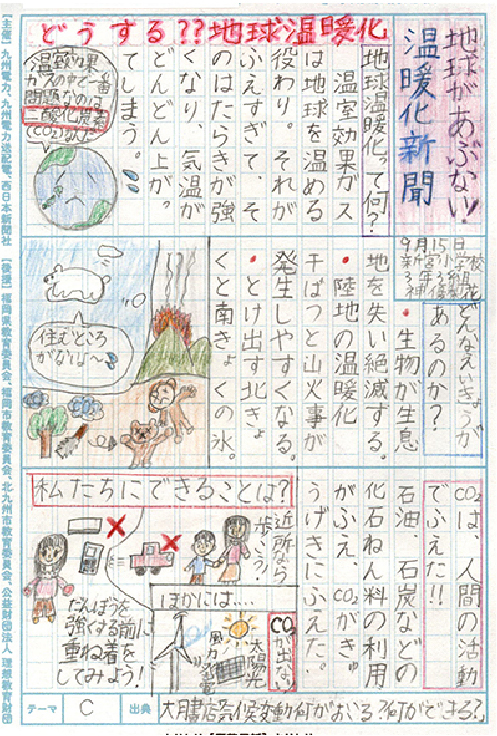 地球があぶない!
温暖化新聞
どうする??地球温暖化
地球温暖化って何?
温室効果ガス
は地球を温める
役わり。それが
ふえすぎて、そ
のはたらきが強
くなり、気温が
どんどん上が、
てしまう。
温室効果
ガスの中で一番
問題なのは
二酸化炭素
(CO2)
9月15日
どんなえいきょうが
あるのか?
・生物が生息
地を失い絶滅する。
・陸地の温暖化
干ばつと山火事が
発生しやすくなる。
・とけ出す北きょ
くと南きょくの氷。
住むところ
がないよ〜
CO2は、人間の活動
でふえた!!
石油、石炭などの
化石ねん料の利用
がふえ、CO2がきゅ
うげきにふえた。
私たちにできることは?
近所なら
歩こう!
だんぼうを
強くする前に
重ね着を
してみよう!
ほかには....
CO2が出ない
太陽光
風力発電
テーマ C 出典 大月書店気候変動何がおこる?何ができる?
【主催】九州電力、九州電力送配電、西日本新聞社 【後援】福岡県教育委員会、福岡市教育委員会、北九州市教育委員会、公益財団法人 理数教育財団